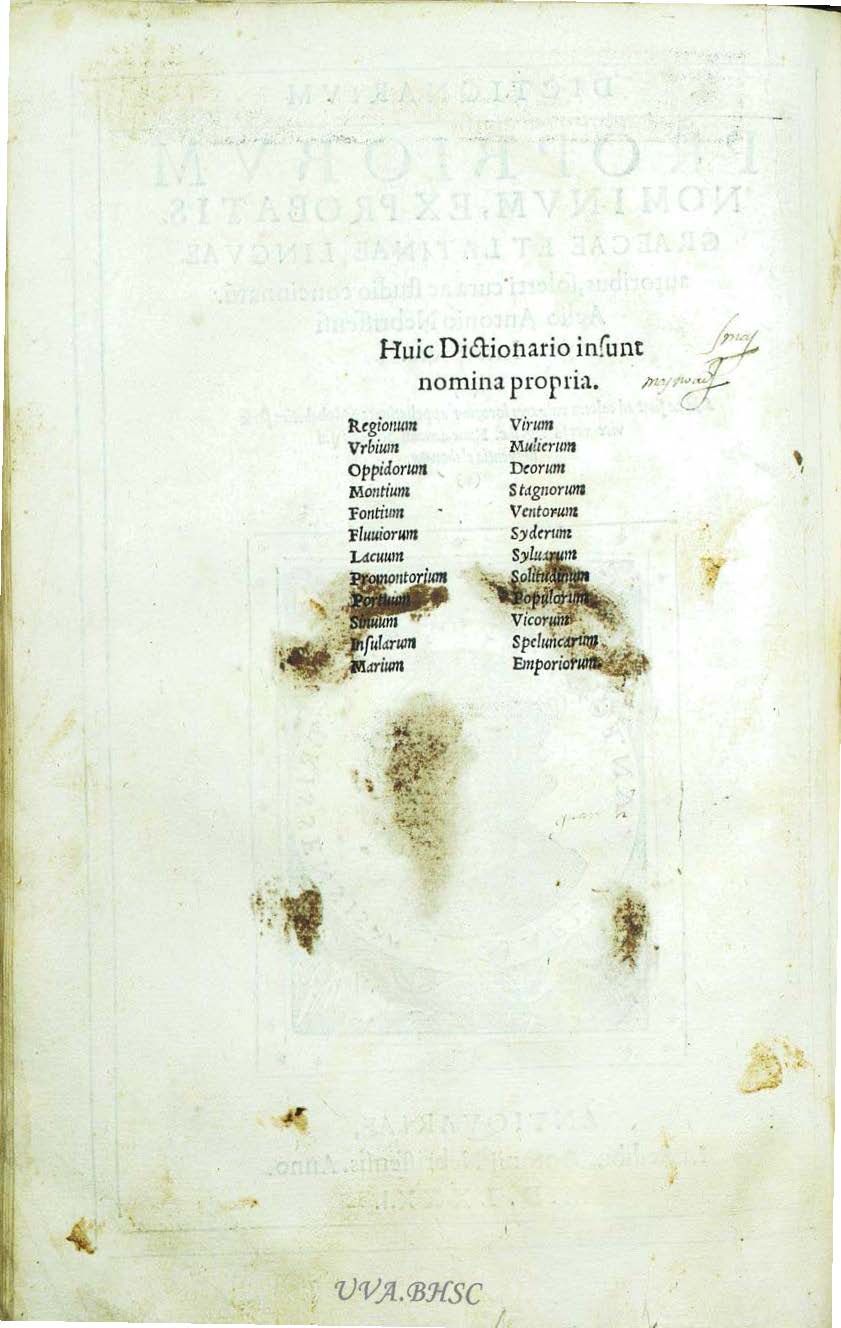 Huic Dictionario inſunt
nomina propria.
Regionum
Vrbium
Oppidorum
Montium
Fontium
Fluuiorum
Lacuum
Promontorium
Portuum
Sinuum
Inſularum
Marium
Virum
Mulierum
Deorum
Stagnorum
Ventorum
Syderum
Syluarum
Solitudinum
Populorum
Vicorum
Speluncarum
Emporiorum.
UVA.BHSC